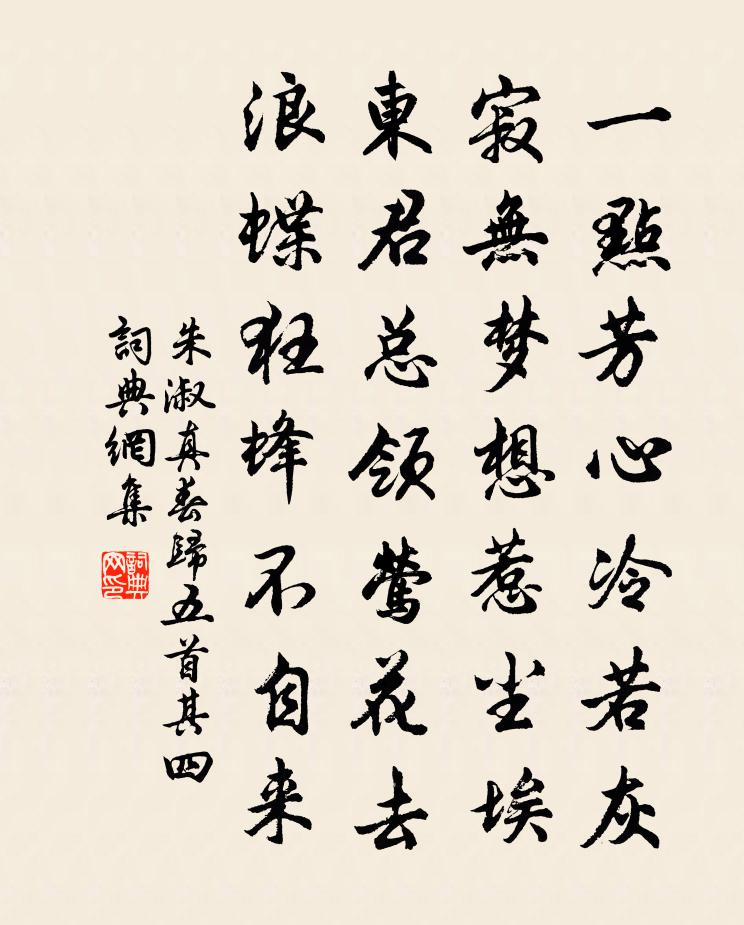 一點芳心冷若灰
寂無梦想惹尘埃
東君总領鶯花去
浪蝶狂蜂不自来
朱淑真春歸五首其四
詞典網集
詞典网印